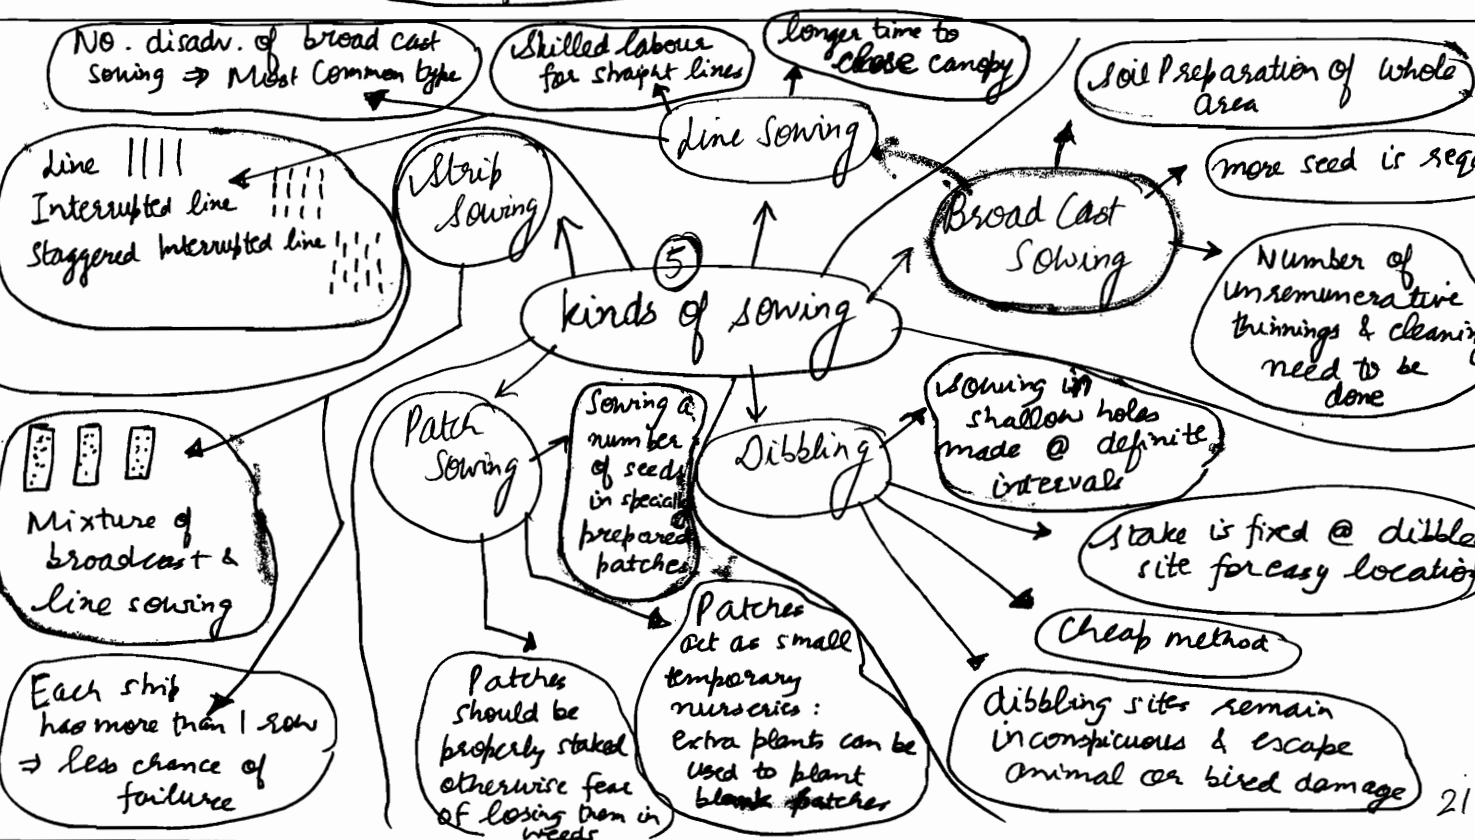 No. disadv. of broad cast
sowing ⇒ Most Common type
Skilled labour
for straight lines
longer time to
close canopy
Soil Preparation of whole
area
Line Sowing
more seed is req
Line
Interrupted line
Staggered Interrupted line
Strip
Sowing
Broad Cast
Sowing
Number of
unremunerative
thinnings & cleanin
need to be
done
5
kinds of sowing
Patch
Sowing
Sowing a
number
of seeds
in specially
prepared
patches
Dibbling
Sowing in
shallow holes
made @ definite
intervals
Mixture of
broadcast &
line sowing
Stake is fixed @ dibble
site for easy location
Cheap method
Each strip
has more than 1 row
⇒ less chance of
failure
Patches
should be
properly staked
otherwise fear
of losing them in
weeds
Patches
act as small
temporary
nurseries:
extra plants can be
used to plant
blank patches
dibbling sites remain
inconspicuous & escape
animal or bired damage
21